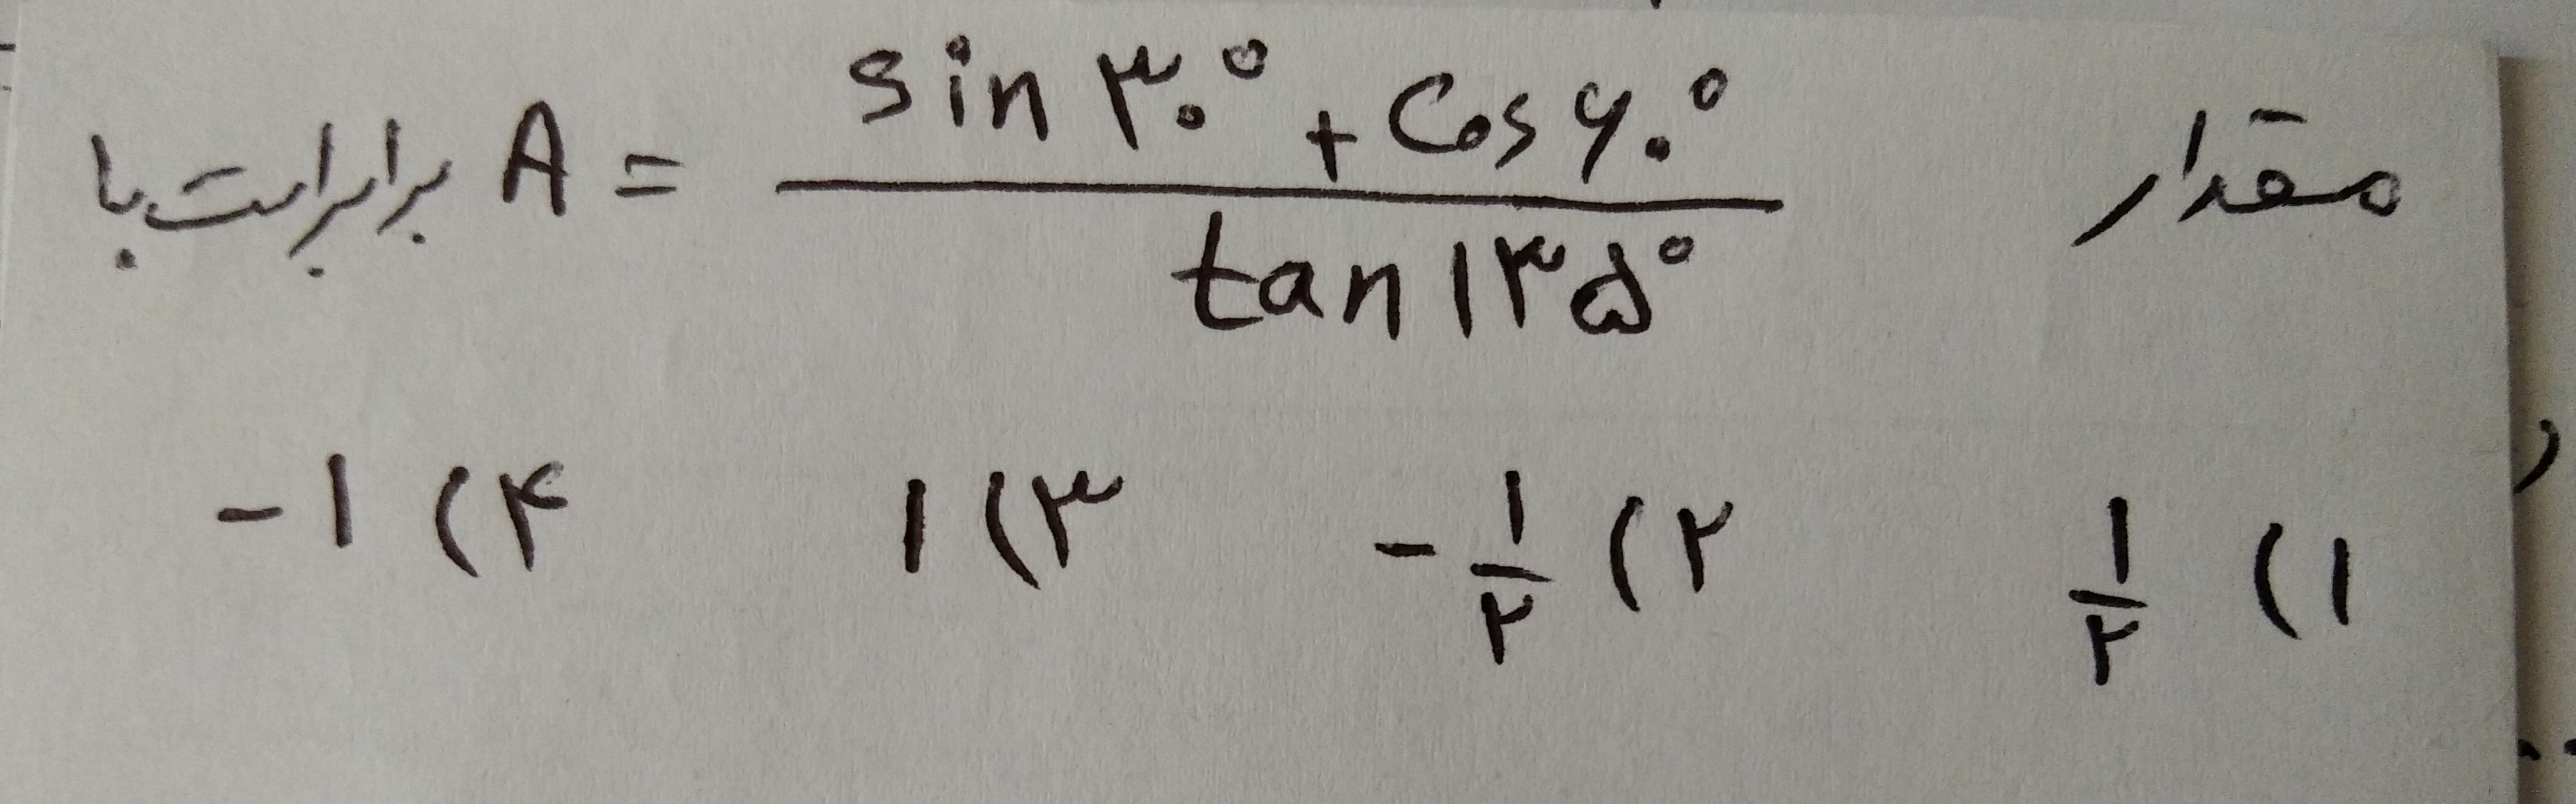 مقدار A = (sin ۳۰° + Cos ۶۰°) / (tan ۱۳۵°) برابراست با
۱) ۱/۲ ۲) -۱/۲ ۳) ۱ ۴) -۱